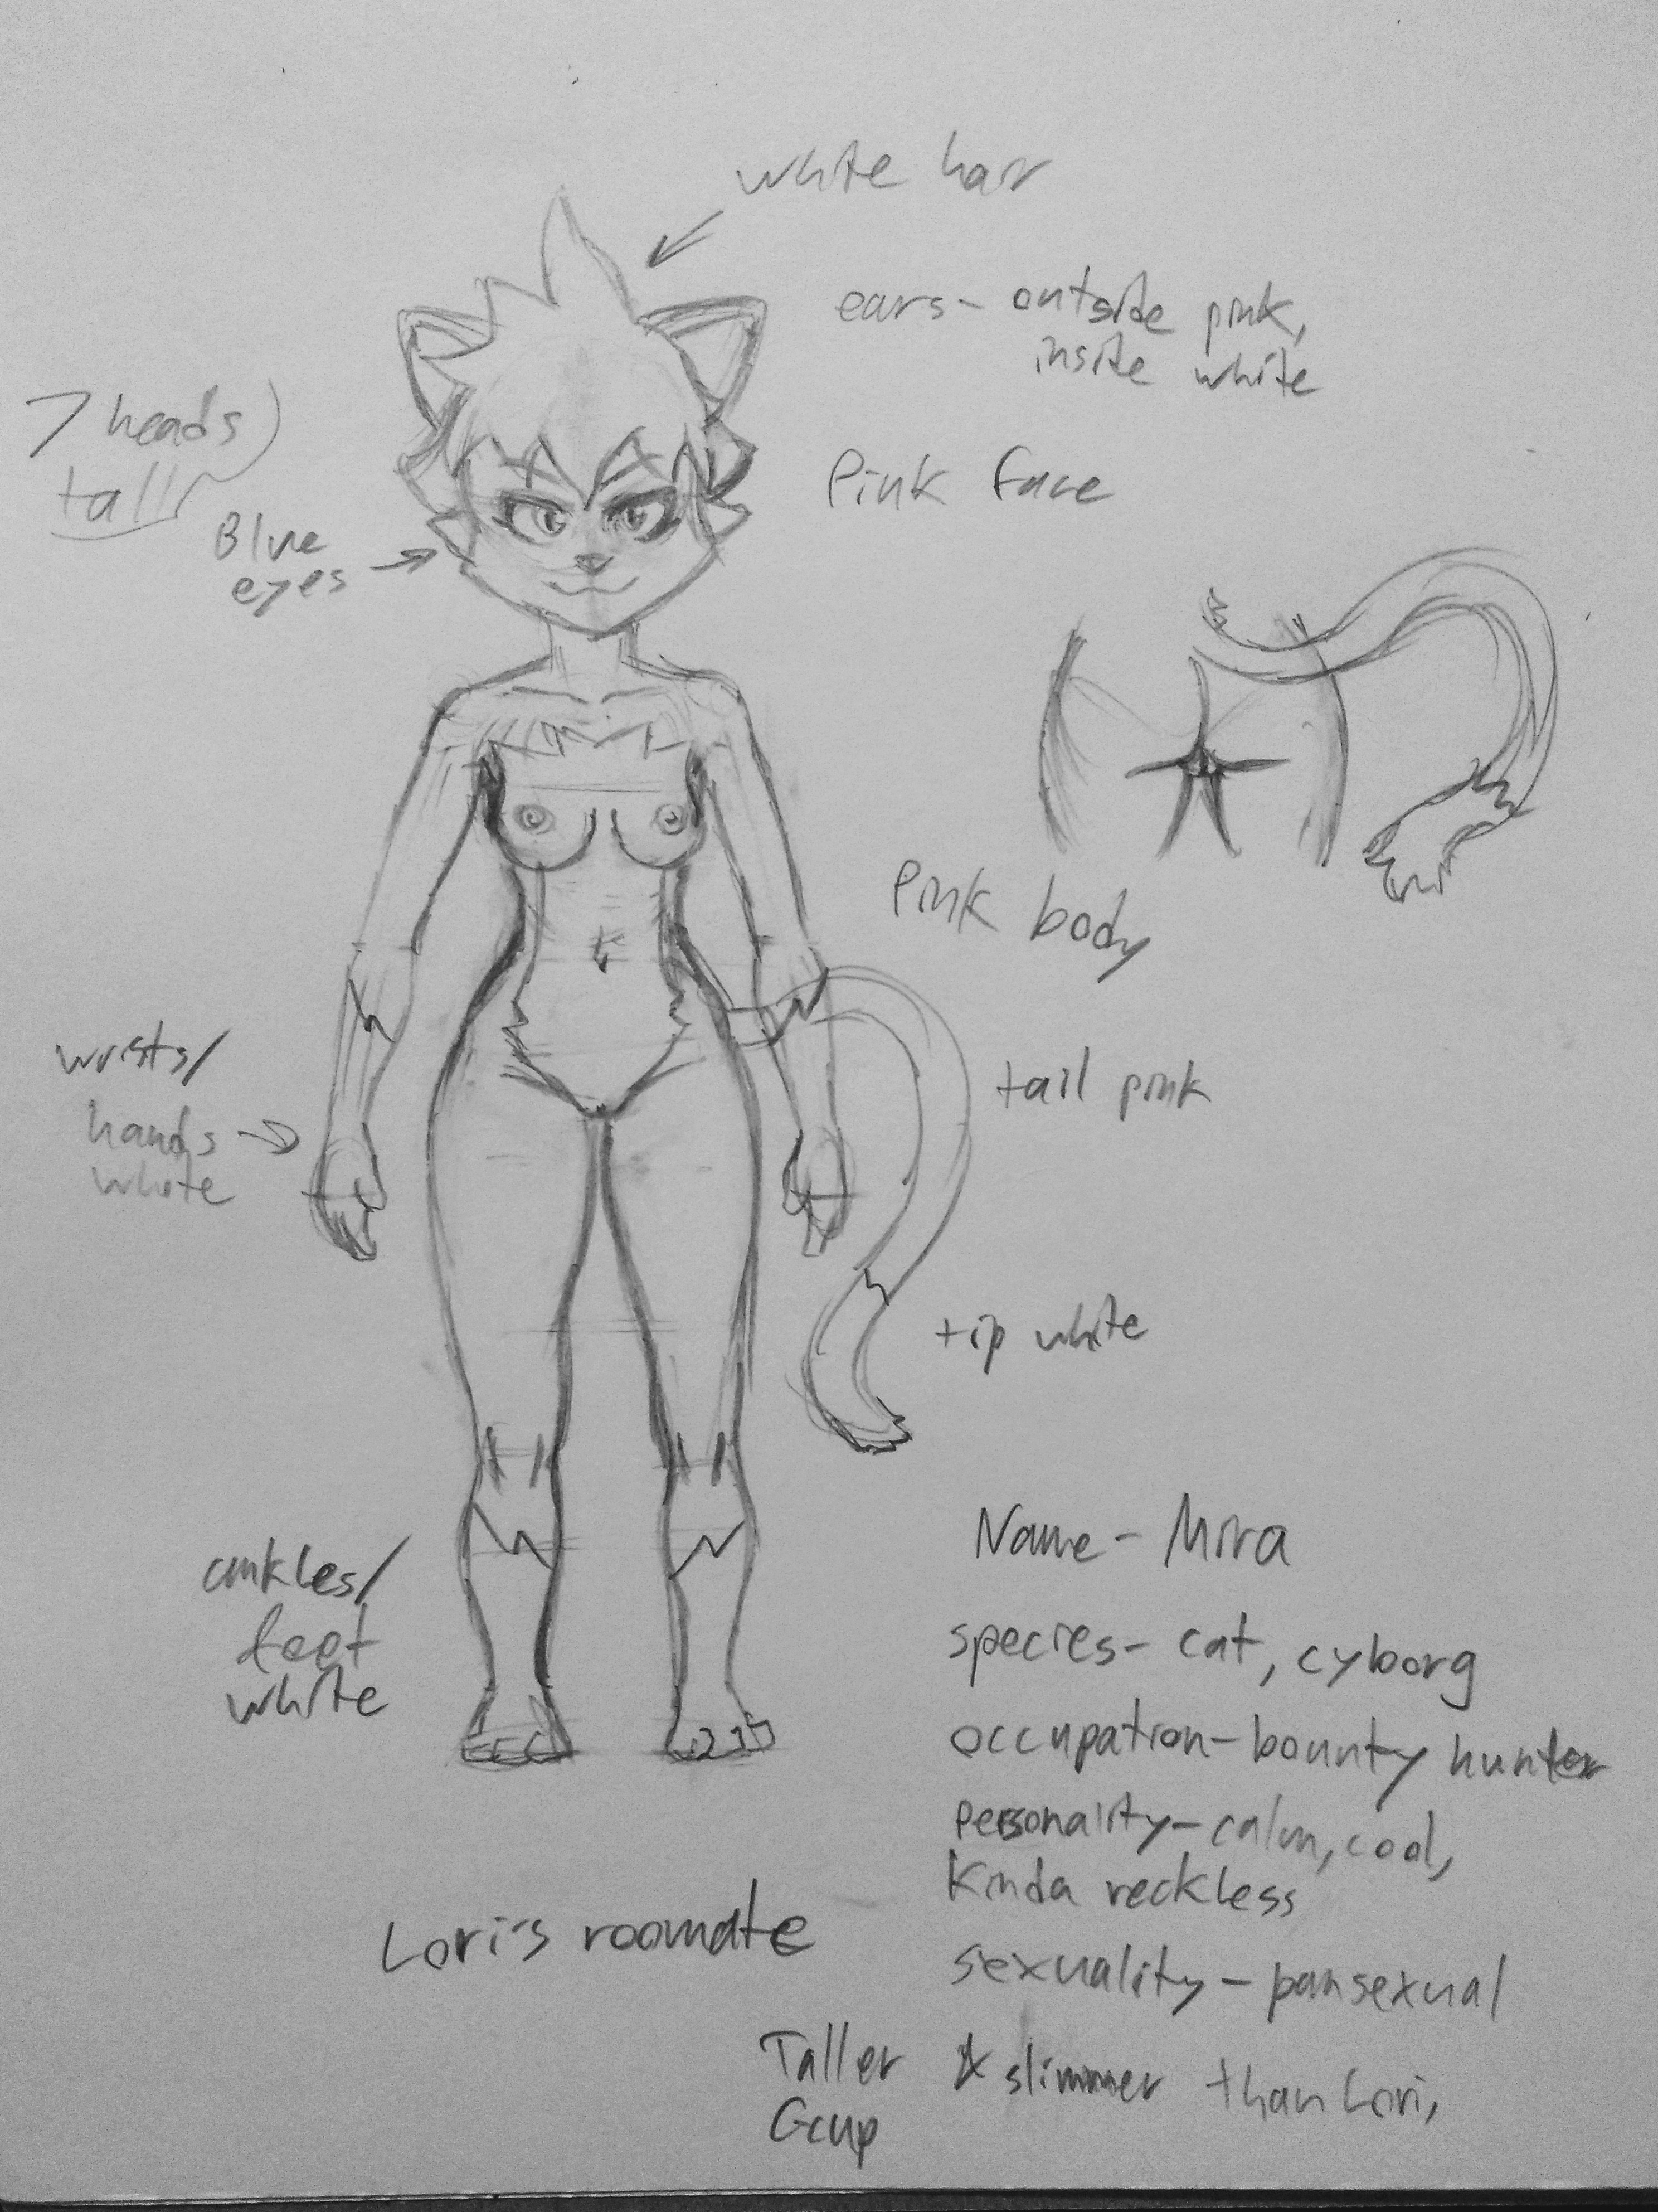 white hair
ears- outside pink,
inside white
7 heads
tall
Pink face
Blue
eyes
Pink body
wrists/
hands
white
tail pink
tip white
ankles/
feet
white
Name- Mira
species- cat, cyborg
occupation- bounty hunter
Personality- calm, cool,
Kinda reckless
Lori's roomate
sexuality- pansexual
Taller & slimmer than Lori,
G cup